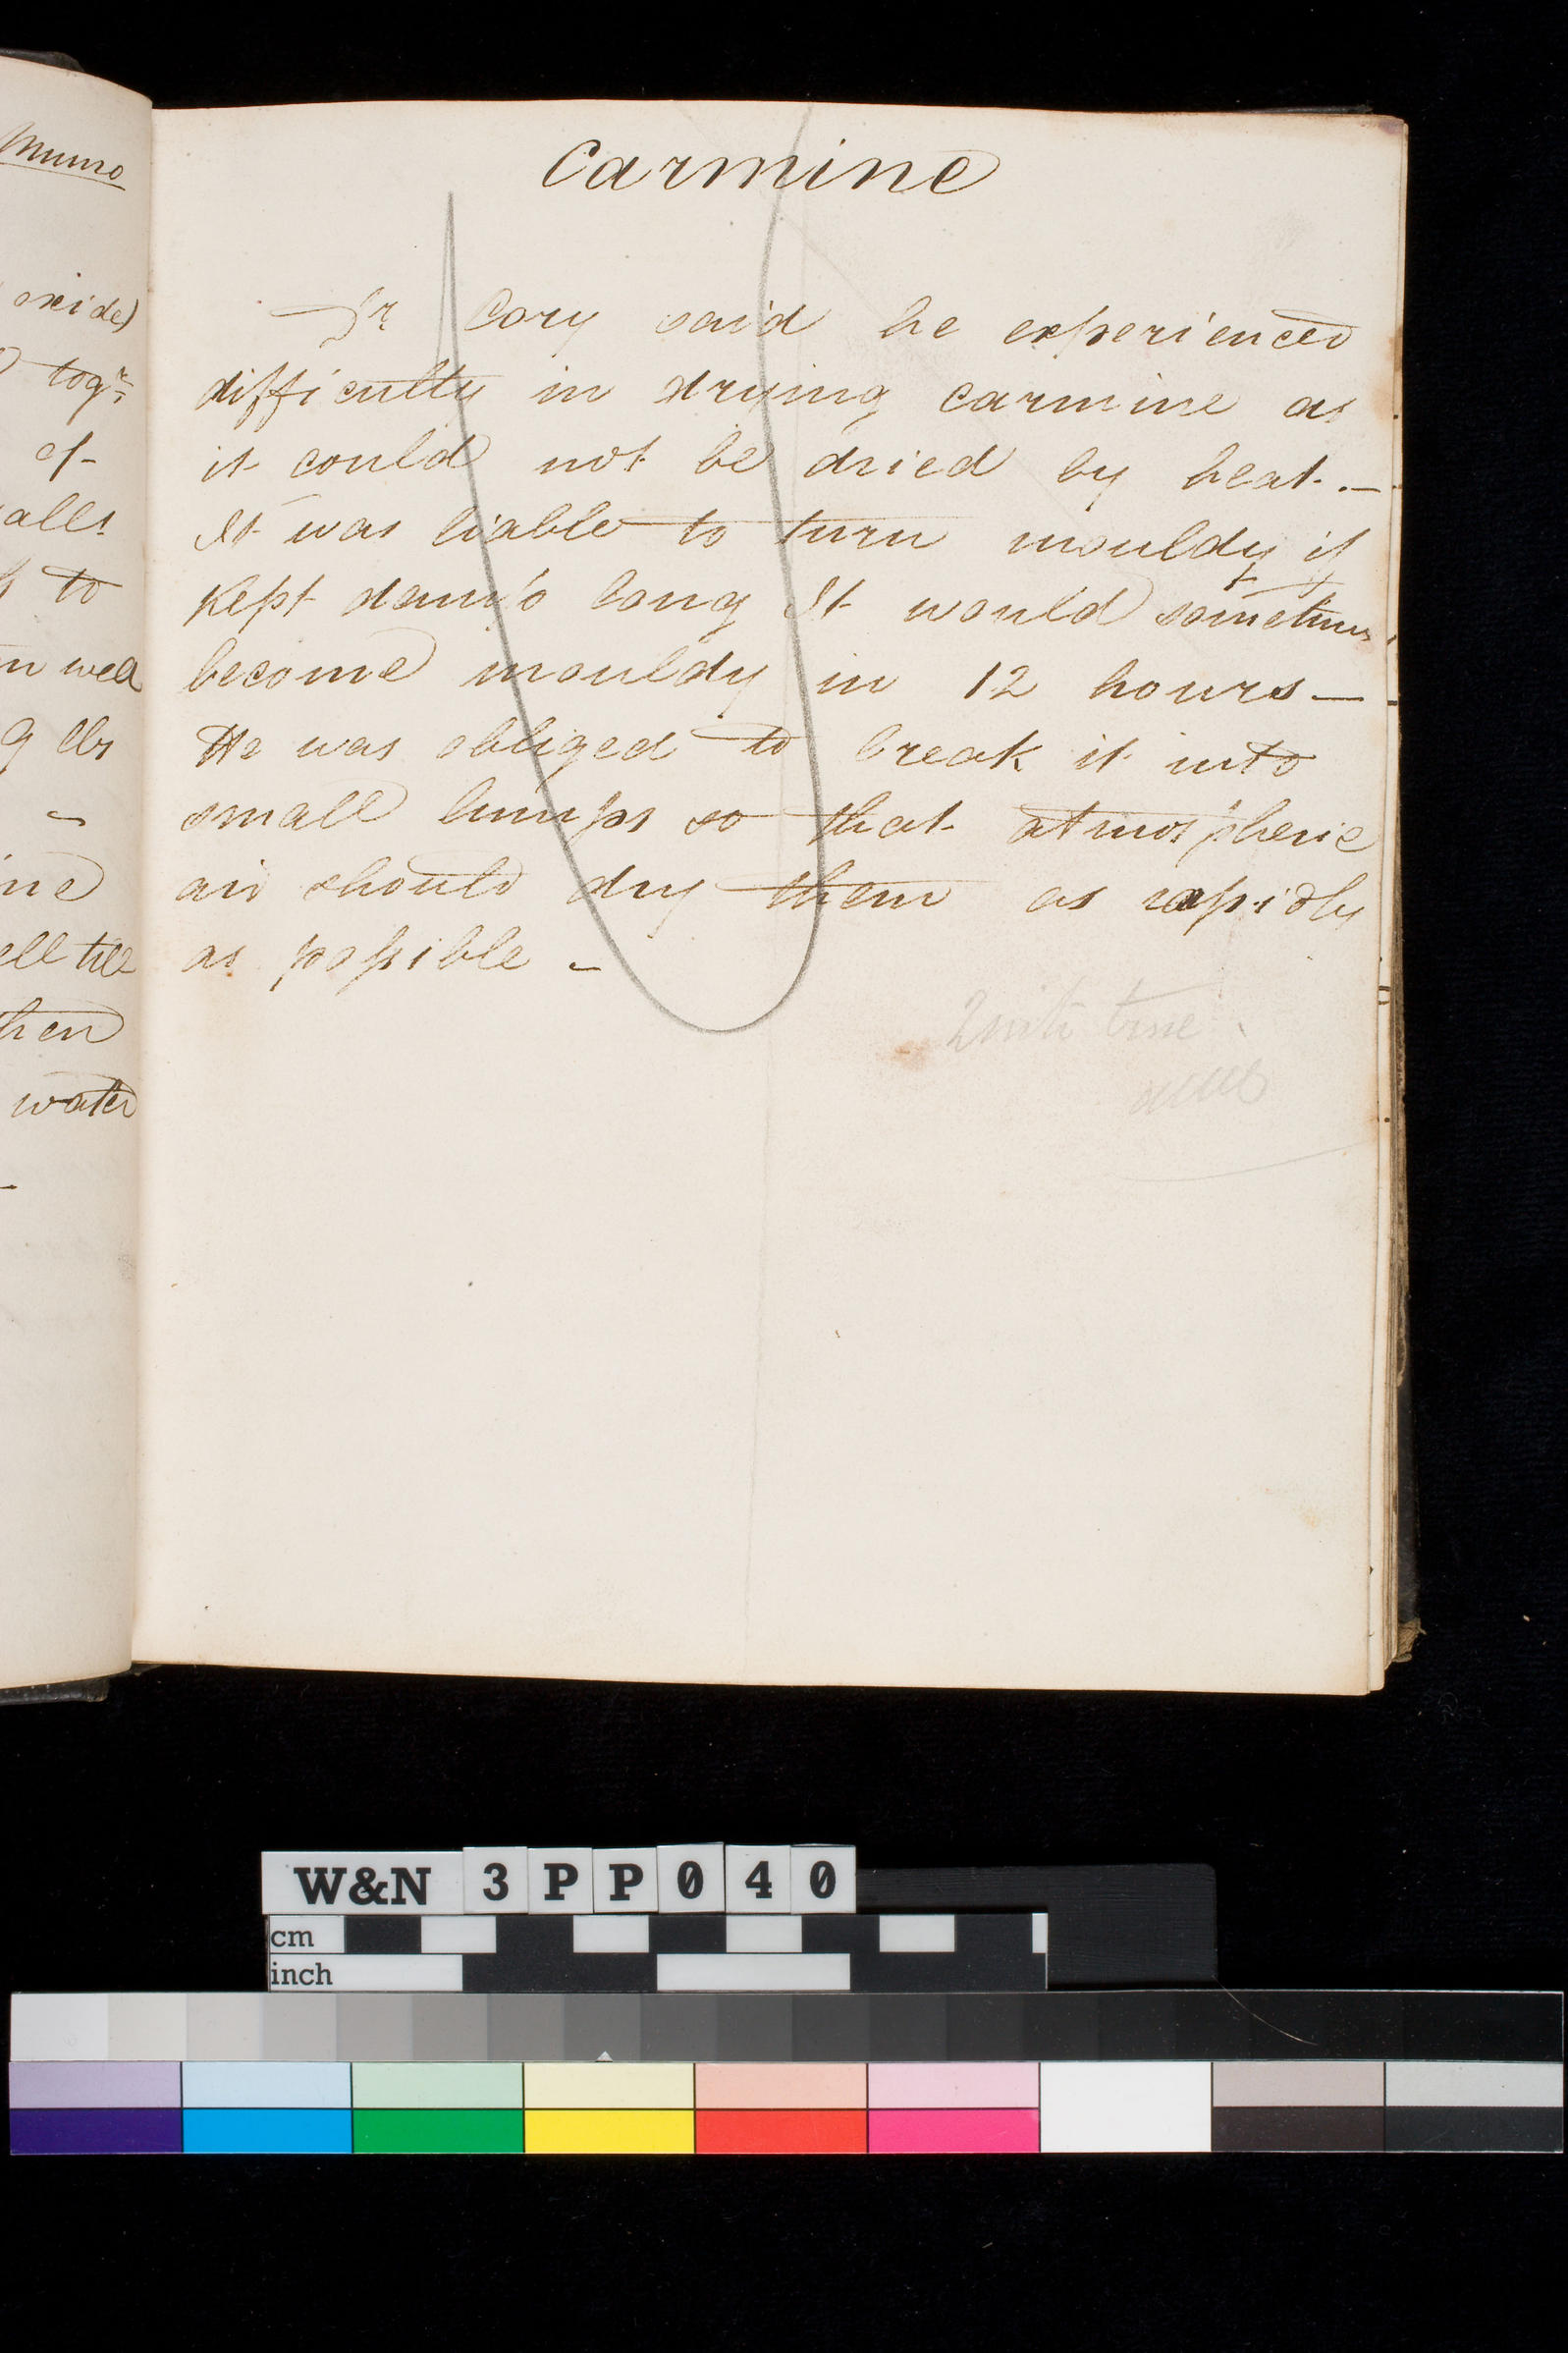 Munro
oxide)
togr
of
alls
to
n well
g lbs
ine
ell till
then
water
Carmine
Jr Cory said he experienced
difficulty in drying carmine as
it could not be dried by heat. —
It was liable to turn mouldy if
kept damp long It would sometimes
become mouldy in 12 hours —
He was obliged to break it into
small lumps so that atmospheric
air should dry them as rapidly
as possible –
true
W&N 3PP040
cm
inch